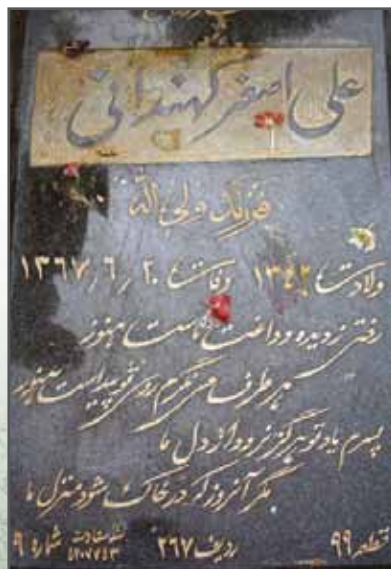 علی اصغر کهندانی
فرزند ولی الله
ولادت ۱۳۴۲ وفات ۲۰/۶/۱۳۶۷
رفتی ز دیده و داغت بماست هنوز
هر طرف می نگرم روی تو پیداست هنوز
پسرم یاد تو هرگز نرود از دل ما
مگر آنروز که در خاک شود منزل ما
قطعه ۹۹ ردیف ۲۶۷ شماره ۹